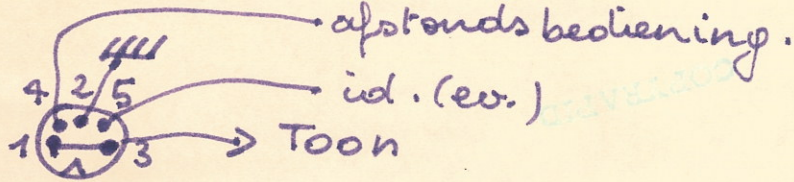 afstandsbediening.
4 2 5
id. (ev.)
1 3 Toon